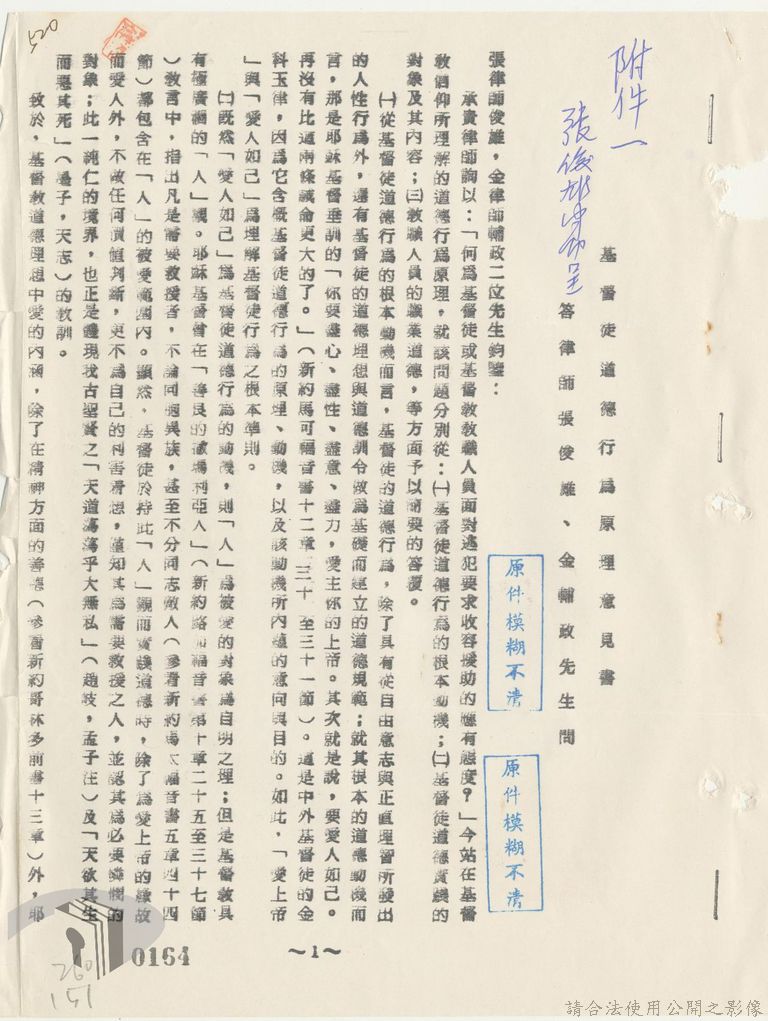 附件一
張俊雄律師呈
基督徒道德行為原理意見書
答律師張俊雄、金輔政先生問
原件模糊不清
原件模糊不清
張律師俊雄，金律師輔政二位先生鈞鑒：
承貴律師詢以：「何為基督徒或基督教教職人員面對逃犯要求收容援助的應有態度？」今站在基督
教信仰所理解的道德行為原理，就該問題分別從：㈠基督徒道德行為的根本動機；㈡基督徒道德實踐的
對象及其內容；㈢教職人員的職業道德，等方面予以簡要的答覆。
㈠從基督徒道德行為的根本動機而言，基督徒的道德行為，除了具有從自由意志與正直理智所發出
的人性行為外，還有基督徒的道德理想與道德訓令做為基礎而建立的道德規範；就其根本的道德動機而
言，那是耶穌基督垂訓的「你要盡心、盡性、盡意、盡力，愛主你的上帝。其次就是說，要愛人如己。
再沒有比這兩條誡命更大的了。」（新約馬可福音書十二章　三十　至三十一節）。這是中外基督徒的金
科玉律，因為它含概基督徒道德行為的原理、動機，以及該動機所內蘊的意向與目的。如此，「愛上帝
」與「愛人如己」為理解基督徒行為之根本準則。
㈡既然「愛人如己」為基督徒道德行為的動機，則「人」為被愛的對象為自明之理；但是基督教具
有極廣闊的「人」觀。耶穌基督曾在「善良的撒瑪利亞人」（新約路加福音書第十章二十五至三十七節
）教言中，指出凡是需要救援者，不論同胞異族，甚至不分同志敵人（參看新約馬太福音書五章四十四
節）都包含在「人」的被愛範圍內。顯然，基督徒於持此「人」觀而實踐道德時，除了為愛上帝的緣故
而愛人外，不做任何價值判斷，更不為自己的利害着想，僅知其為需要救援之人，並認其為必要憐憫的
對象；此一純仁的境界，也正是體現我古聖賢之「天道蕩蕩乎大無私」（趙岐，孟子注）及「天欲其生
而惡其死」（墨子，天志）的教訓。
致於，基督教道德理想中愛的內涵，除了在精神方面的善德（參看新約哥林多前書十三章）外，耶
～1～
0164
520
260
151
請合法使用公開之影像